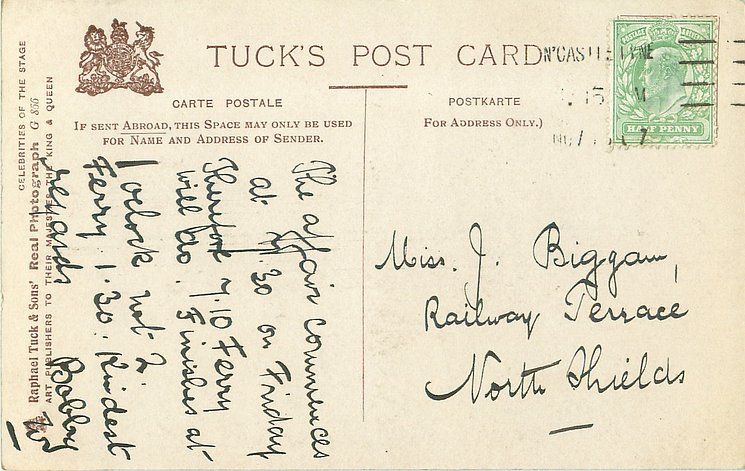 TUCK'S POST CARD
CARTE POSTALE
POSTKARTE
IF SENT ABROAD, THIS SPACE MAY ONLY BE USED
FOR NAME AND ADDRESS OF SENDER.
FOR ADDRESS ONLY.)
CELEBRITIES OF THE STAGE
Raphael Tuck & Sons' Real Photograph G 856
ART PUBLISHERS TO THEIR MAJESTIES THE KING & QUEEN
N'CASTLE TYNE
HALF PENNY
The affair commences
at 7.30 on Friday
Therefore 7.10 Ferry
will do. Finishes at
1 oclock not 2.
Ferry 1.30. Kindest
regards
Bobby
Miss. J. Biggam,
Railway Terrace
North Shields